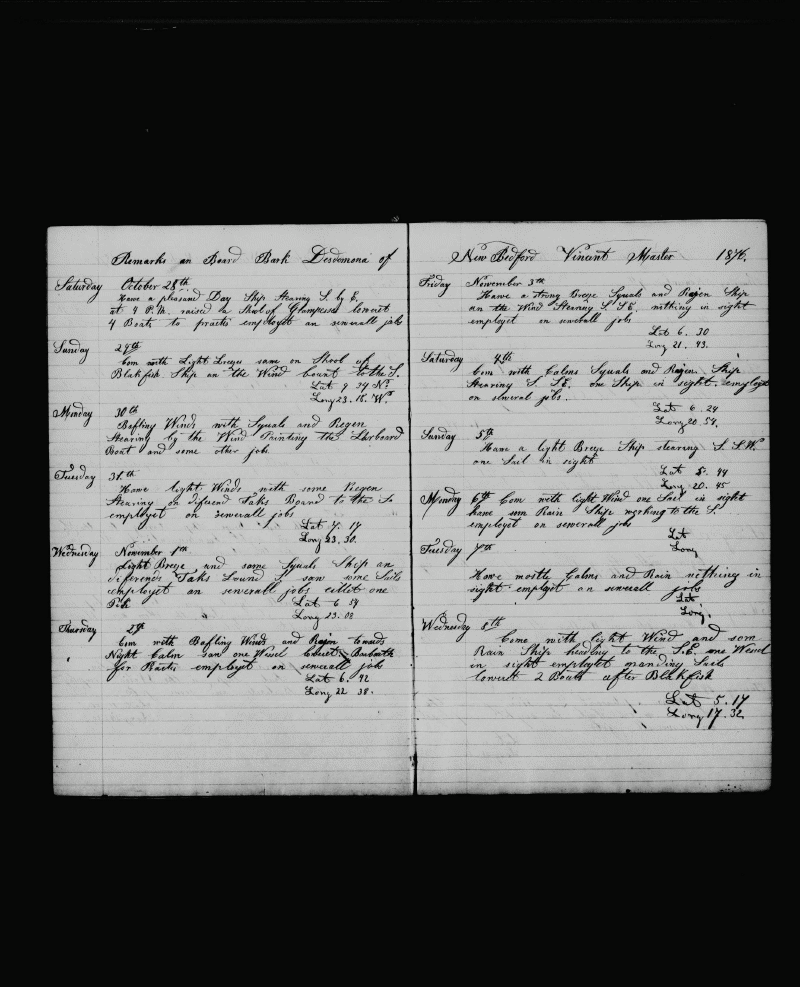 Remarks on Board Bark Desdemona of
Saturday October 28th.
Have a pleasand Day Ship Stearing S. by E.
at 4 P.M. raised a Skool of Grampesses lowert
4 Boats to practis employet an sewerall jobs
Sunday 29th
Com with Light breeze same on Skool of
Blakfish Ship an the Wind bount to the S.
Lat 9 34 No.
Long 23. 18. W.
Monday 30th
Bafling Winds with Squals and Regen
Stearing by the Wind Painting the Larboard
Boat and some other jobs
Tuesday 31.th
Have light Wind with some Regen
Stearing on diferend Taks Board to the S.
employet on sewerall jobs
Lat 7. 17
Long 23. 30.
Wednesday November 1th
Light Breeze and some Squals Ship an
diference Taks bound S saw some Sails
employet an sewerall jobs one
Lat 6 59
Long 23. 02
Thursday 2th
Com with Bafling Winds and Rajen towards
Night Calm saw one Wesel
for employet on sewerall jobs
Lat 6. 42
Long 22 38.
New Bedford Vincent Master 1876.
Friday November 3th
Have a strong Breze Squals and Rajen Ship
an the Wind Stearing S. S.E. nithing in sight
employet on sewerall jobs
Lat 6. 30
Long 21. 43.
Saturday 4th.
Com with Calms Squals and Rajen. Ship
Stearing S. S.E. one Ship in sight employet
on several jobs.
Lat 6. 24
Long 20 54.
Sunday 5th
Have a light Breeze Ship stearing S. S.W.
one Sail in sight
Lat 5. 44
Long 20. 45
Monday 6th Com with light Wind one Sail in sight
have som Rain Ship working to the S.
employet on sewerall jobs
Lat
Long
Tuesday 7th
Have mostly Calms and Rain nithing in
sight employet on sewerall jobs
Lat
Long.
Wednesday 8th
Come with light Wind and som
Rain Ship heading to the S.E. one Wesel
in sight employet manding Sails
lowert 2 Boats after Blakfish
Lat 5. 17
Long 17. 32